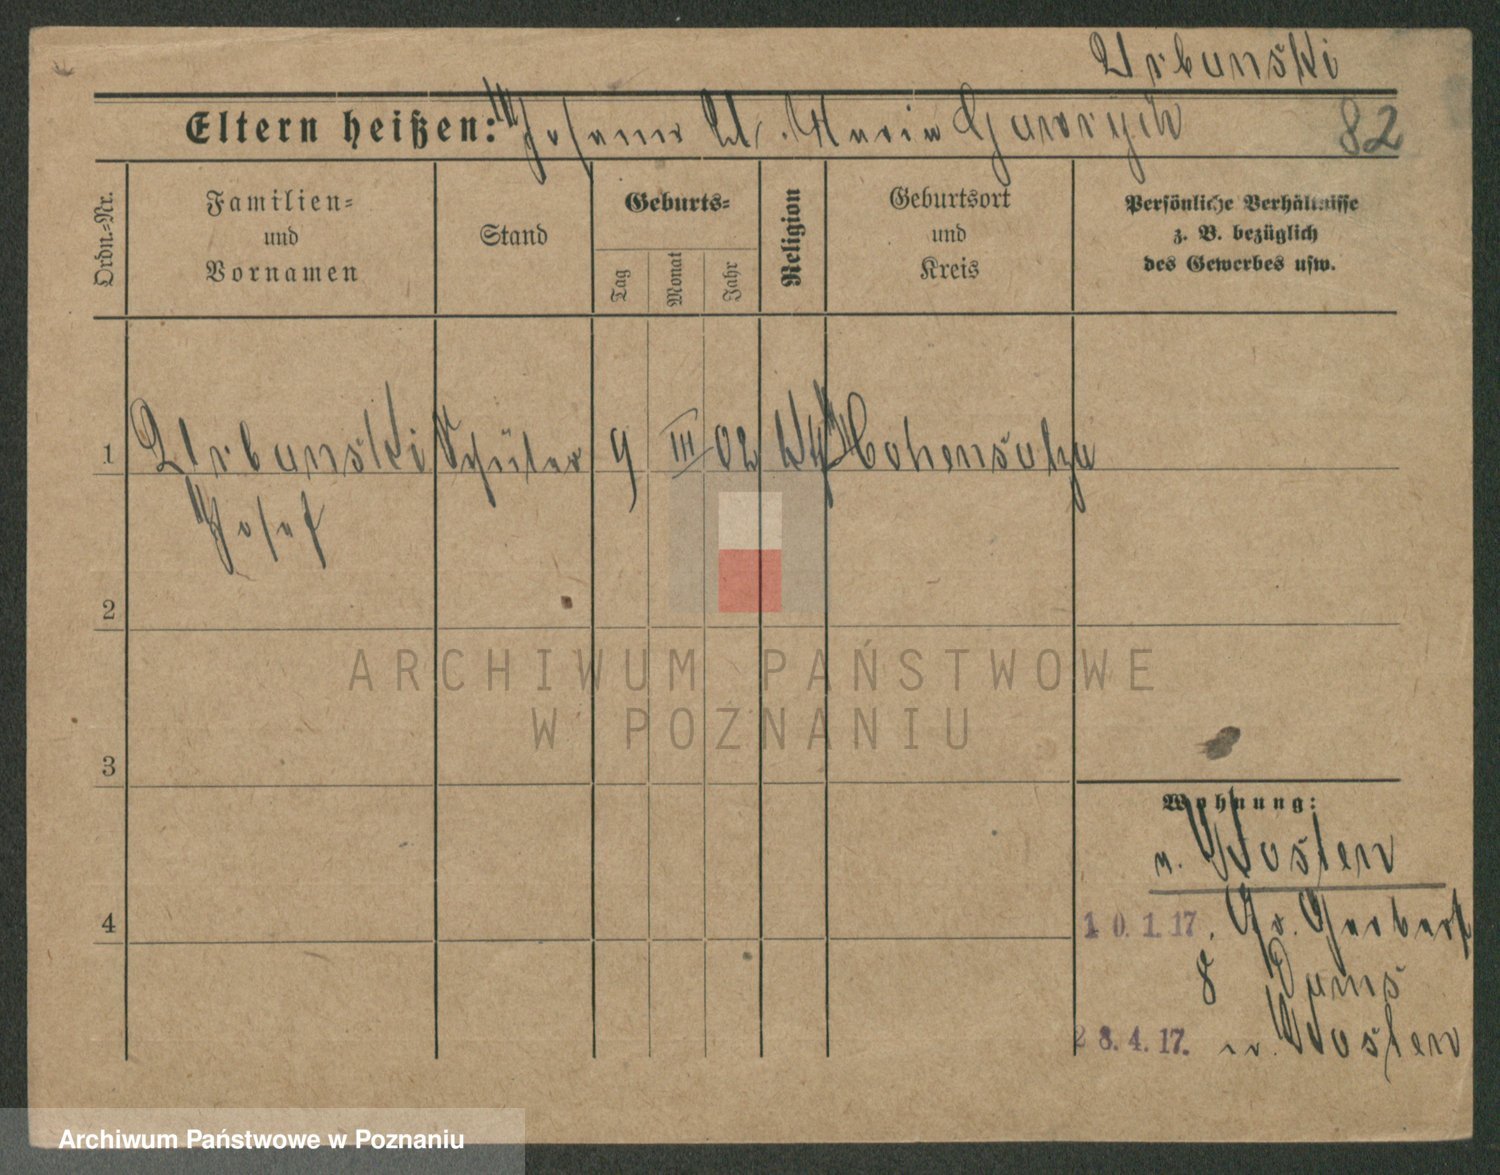 Urbanski
Eltern heißen: Johann U. Maria Gawrych 82
Ordn.-Nr.
Familien- und Vornamen
Stand
Geburts-
Tag
Monat
Jahr
Religion
Geburtsort und Kreis
Persönliche Verhältnisse z. B. bezüglich des Gewerbes usw.
1 Urbanski Schüler 9 III 02 kth Hohensalza
Josef
2
3
Wohnung:
n. Kosten
4
10.1.17. Gr. Gerber
8 Dams
28.4.17. n. Kosten
ARCHIWUM PAŃSTWOWE
W POZNANIU
Archiwum Państwowe w Poznaniu